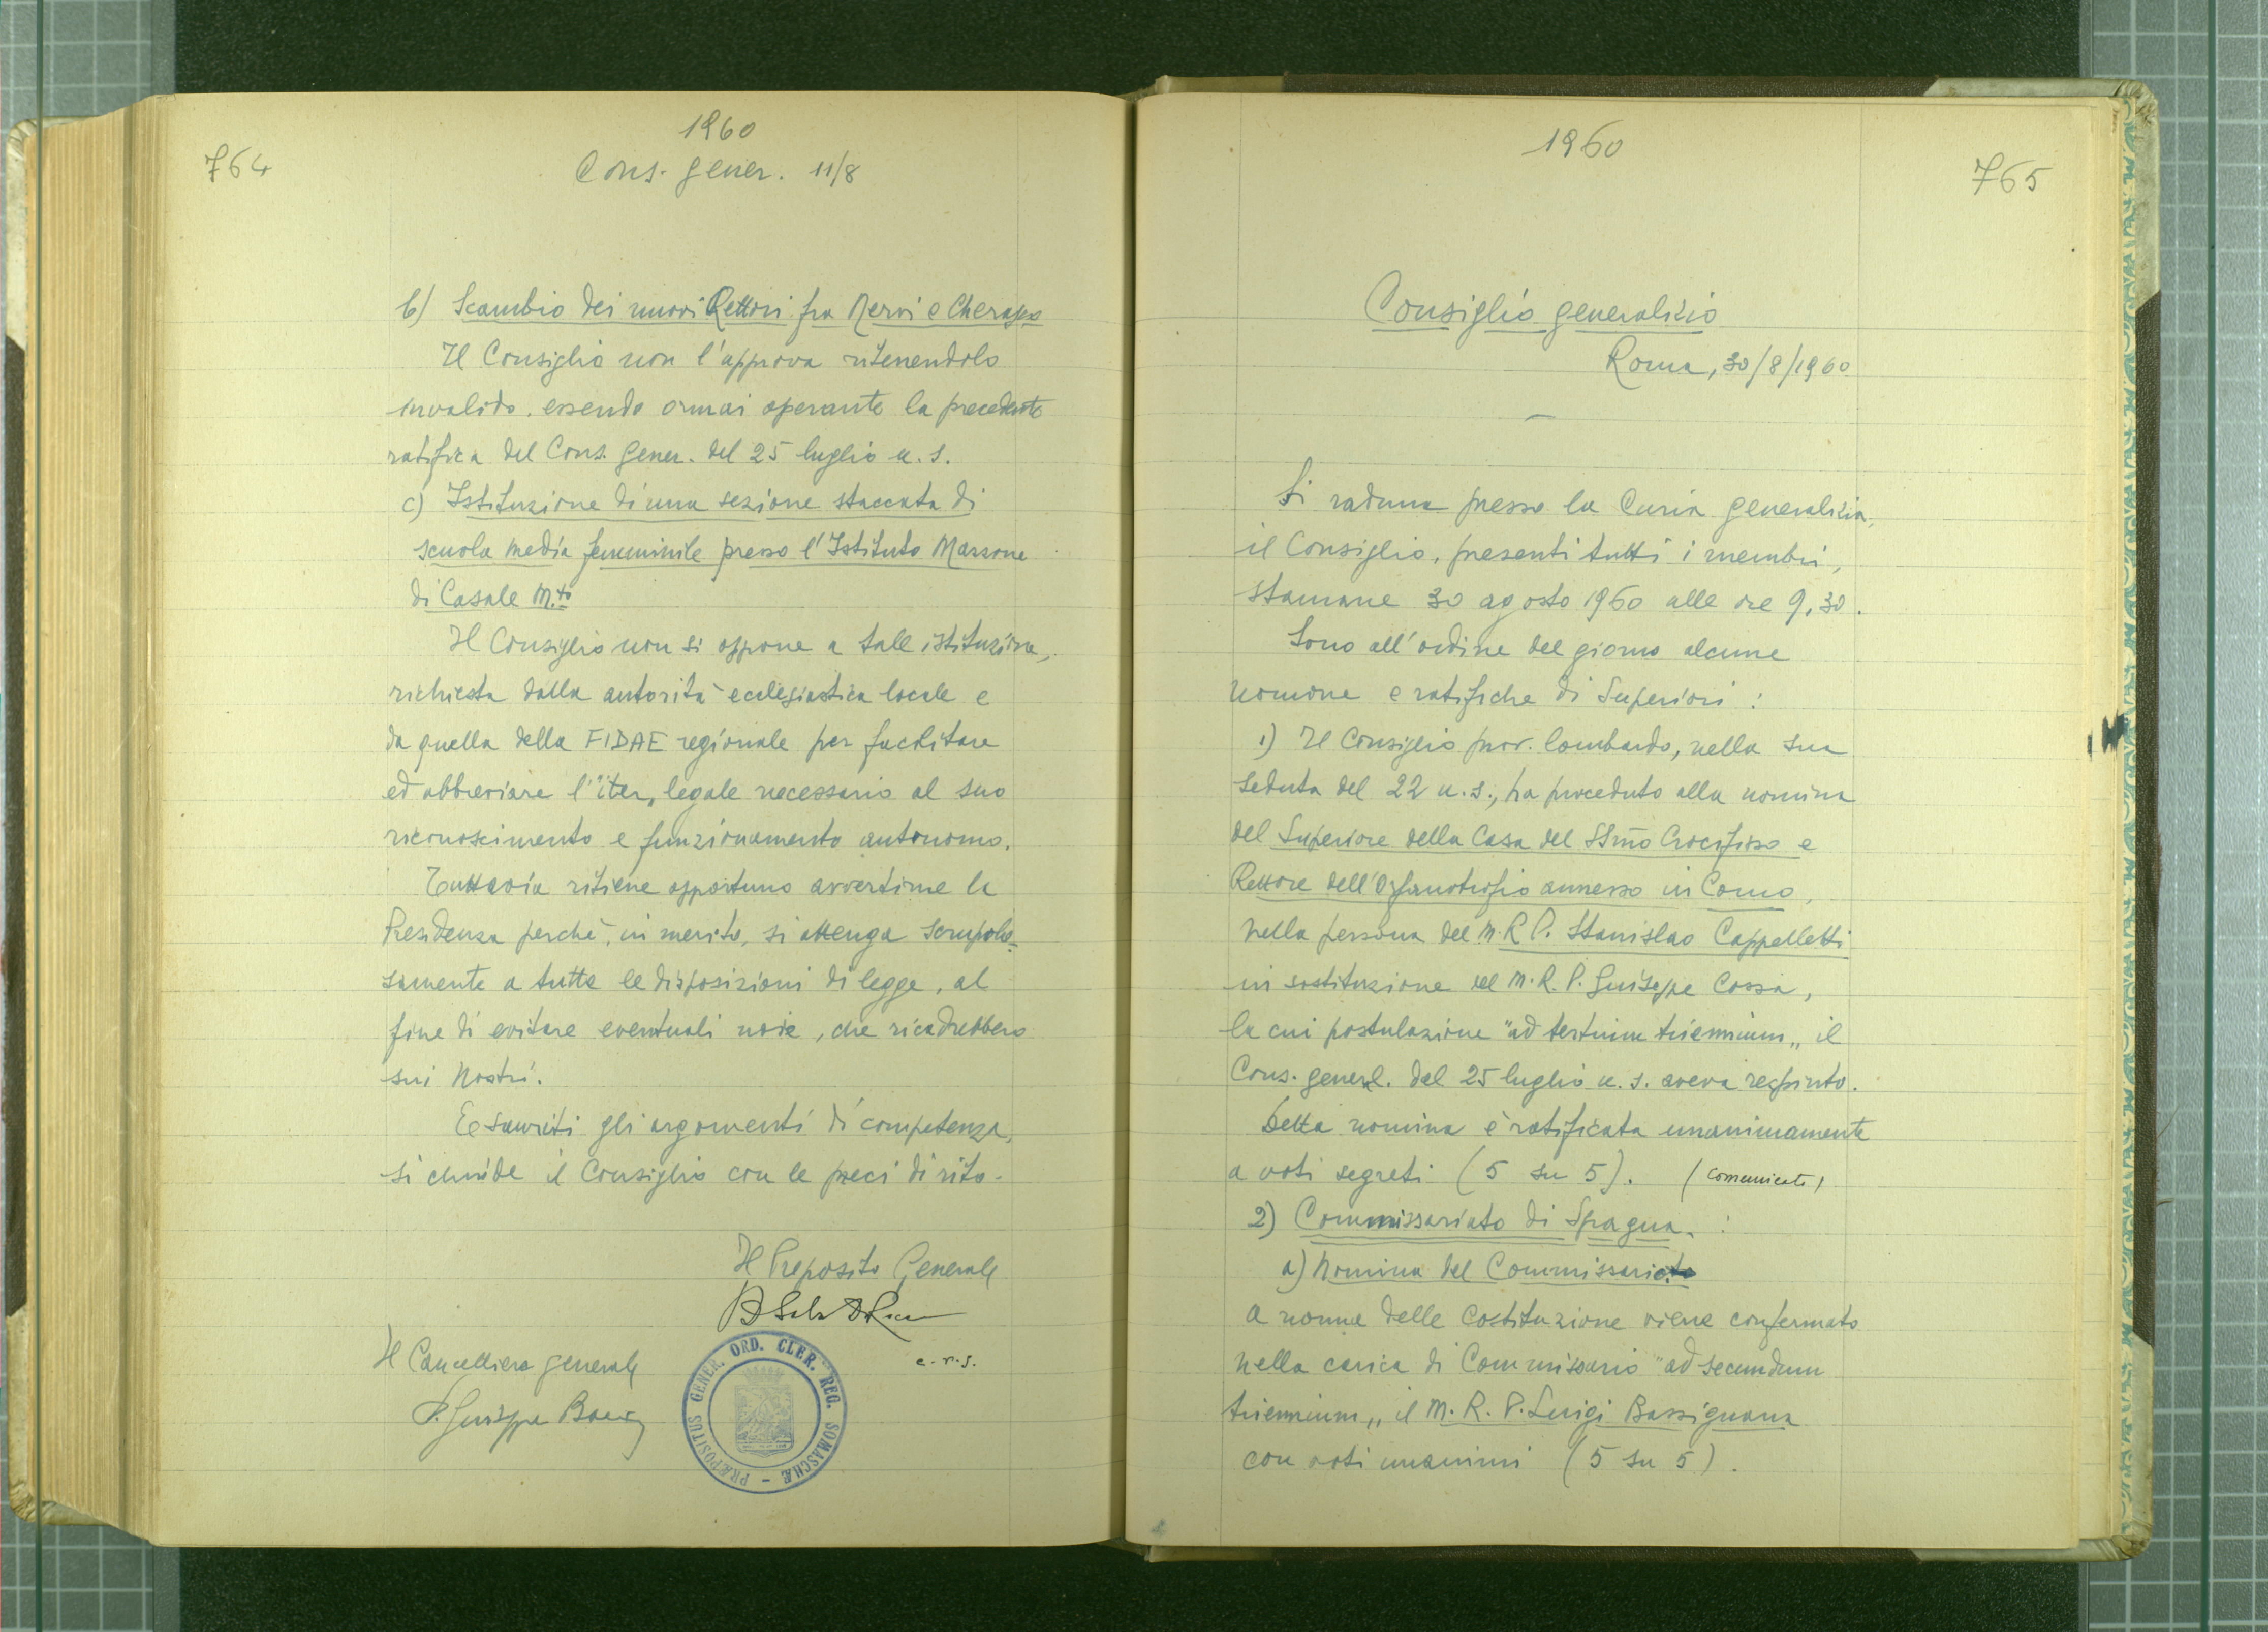 1960
764
Cons. gener. 11/8
b) Scambio dei nuovi Rettori fra Nervi e Cherasco
Il Consiglio non l'approva ritenendolo
invalido, essendo ormai operante la precedente
ratifica del Cons. Gener. del 25 luglio u. s.
c) Istituzione di una sezione staccata di
scuola media femminile presso l'Istituto Marzone
di Casale M.to
Il Consiglio non si oppone a tale istituzione,
richiesta dalla autorità ecclesiastica locale e
da quella della FIDAE regionale per facilitare
ed abbreviare l'iter, legale necessario al suo
riconoscimento e funzionamento autonomo.
Tuttavia ritiene opportuno avvertirne la
Presidenza perchè, in merito, si attenga scrupolo-
samente a tutte le disposizioni di legge, al
fine di evitare eventuali noie, che ricadrebbero
sui Nostri.
Esauriti gli argomenti di competenza,
si chiude il Consiglio con le preci di rito.
Il Preposito Generale
c.r.s.
Il Cancelliere generale
P. Giuseppe
PRÆPOSITUS GENER. ORD. CLER. REG. SOMASCHÆ
1960
765
Consiglio generalizio
Roma, 30/8/1960
Si raduna presso la Curia generalizia,
il Consiglio, presenti tutti i membri,
stamane 30 agosto 1960 alle ore 9,30.
Sono all'ordine del giorno alcune
nomine e ratifiche di Superiori :
1) Il Consiglio prov. lombardo, nella sua
seduta del 22 u. s., ha proceduto alla nomina
del Superiore della Casa del SSmo Crocifisso e
Rettore dell'Orfanotrofio annesso in Como,
nella persona del M. R. P. Stanislao Cappelletti
in sostituzione del M. R. P. Giuseppe Cossa,
la cui postulazione "ad tertium triennium" il
Cons. generl. del 25 luglio u. s. aveva respinto.
Detta nomina è ratificata unanimamente
a voti segreti (5 su 5). (comunicato)
2) Commissariato di Spagna :
a) Nomina del Commissario
A norma delle Costituzione viene confermato
nella carica di Commissario "ad secundum
triennium" il M. R. P. Luigi Bassignana
con voti unanimi (5 su 5).